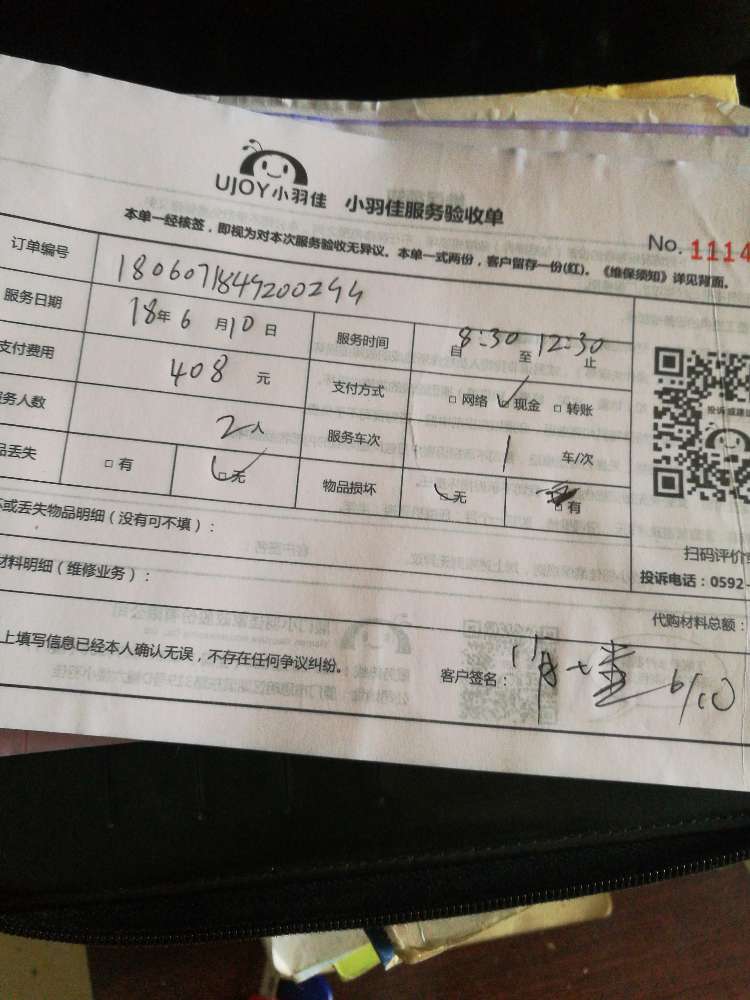 UJOY小羽佳 小羽佳服务验收单
No. 1114
本单一经核签，即视为对本次服务验收无异议。本单一式两份，客户留存一份(红)。《维保须知》详见背面。
订单编号 1806071849200294
服务日期 18年 6 月 10 日 服务时间 自 8:30 至 12:30 止
支付费用 408 元 支付方式 □ 网络 □ 现金 □ 转账
务人数 2人 服务车次 1 车/次
品丢失 □ 有 □ 无 物品损坏 □ 无 □ 有
坏或丢失物品明细（没有可不填）：
扫码评价
材料明细（维修业务）：
投诉电话：0592-
代购材料总额：
上填写信息已经本人确认无误，不存在任何争议纠纷。 客户签名： 6/10